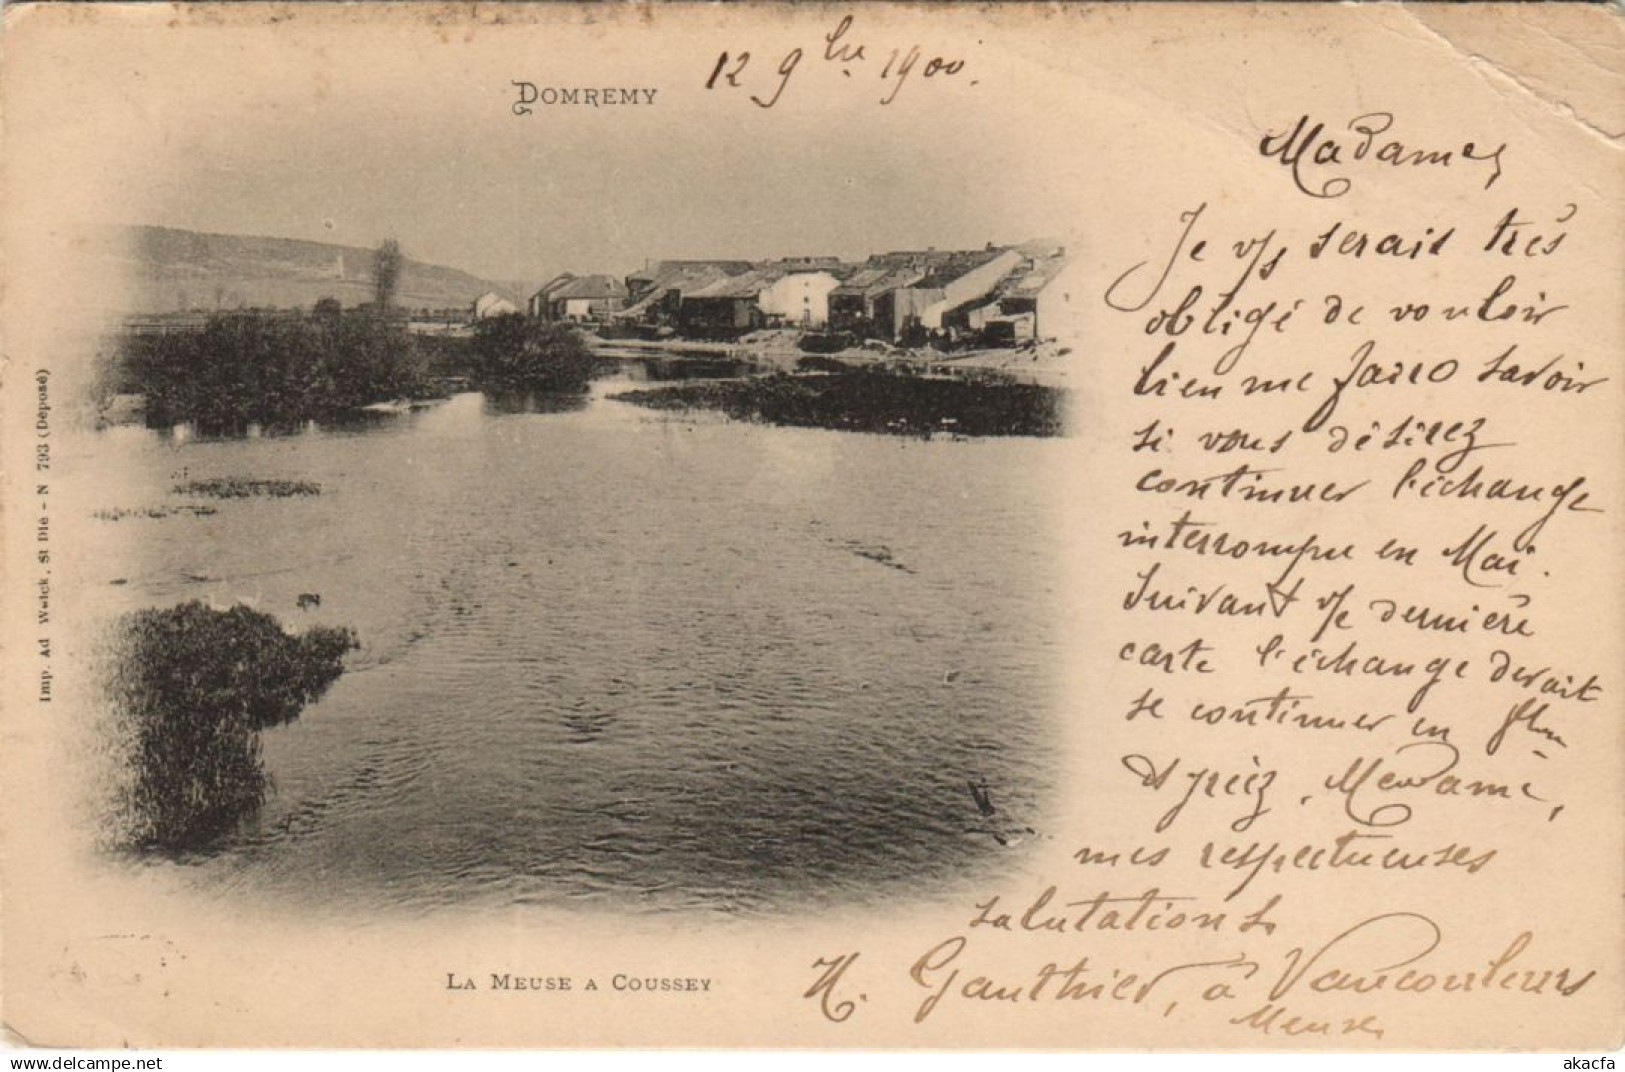 DOMREMY
12 9bre 1900.
Madame,
Je v/s serais très
obligé de vouloir
bien me faire savoir
si vous désirez
continuer l'échange
interrompu en Mai.
Suivant v/e dernière
carte l'échange devait
se continuer en
Agréez, Madame,
mes respectueuses
salutations.
H. Gauthier, à Vaucouleurs
Meuse.
LA MEUSE A COUSSEY
Imp. Ad Weick, St Dié - N 793 (Déposé)
delcampe.net
akacfa